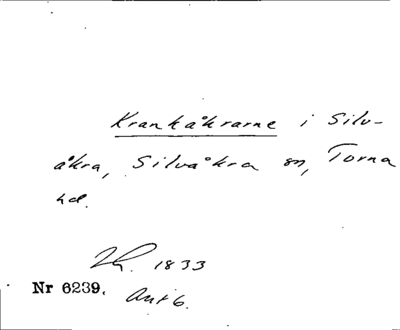 Krankåkrarne i Silv-
åkra, Silvåkra sn, Torna
hd.
1833
Nr 6239. Ant 6.